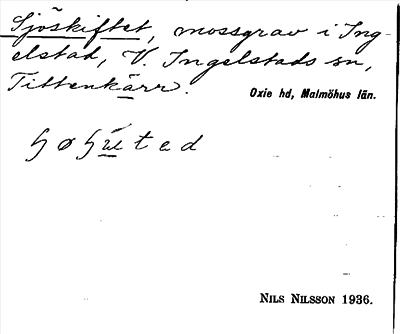 Sjöskiftet, mossgrav i Ing-
elstad, V. Ingelstads sn,
Tittenkärr.
Oxie hd, Malmöhus län.
NILS NILSSON 1936.